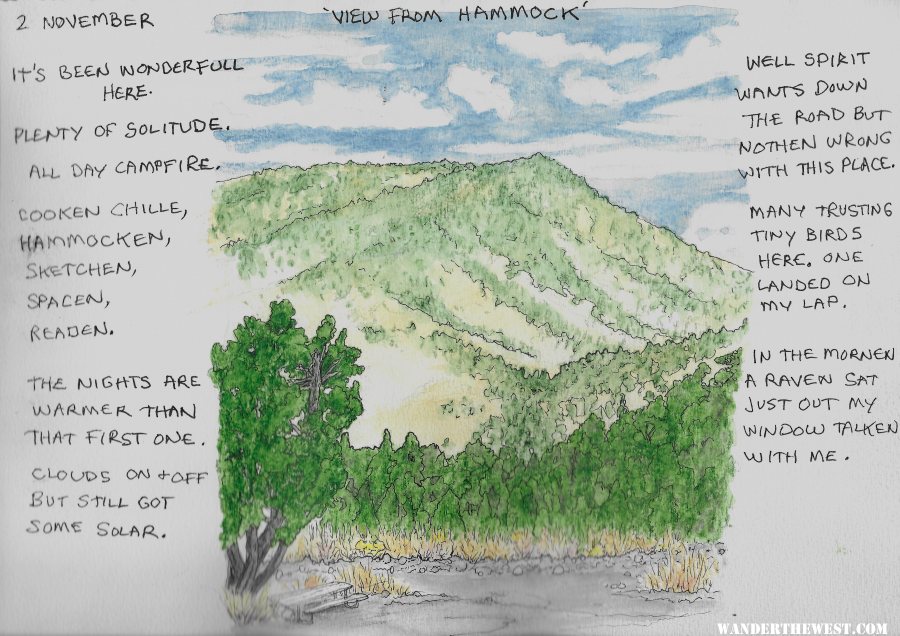 2 NOVEMBER
'VIEW FROM HAMMOCK'
IT'S BEEN WONDERFULL
HERE.
PLENTY OF SOLITUDE.
ALL DAY CAMPFIRE.
COOKEN CHILLE,
HAMMOCKEN,
SKETCHEN,
SPACEN,
READEN.
THE NIGHTS ARE
WARMER THAN
THAT FIRST ONE.
CLOUDS ON + OFF
BUT STILL GOT
SOME SOLAR.
WELL SPIRIT
WANTS DOWN
THE ROAD BUT
NOTHEN WRONG
WITH THIS PLACE.
MANY TRUSTING
TINY BIRDS
HERE. ONE
LANDED ON
MY LAP.
IN THE MORNEN
A RAVEN SAT
JUST OUT MY
WINDOW TALKEN
WITH ME.
WANDERTHEWEST.COM